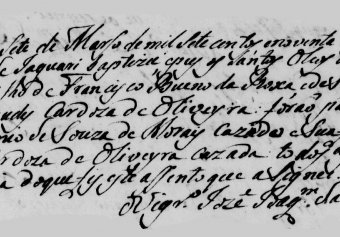 Sete de Marso de mil sete centos e noventa
de Jaguari Baptizei e pus os santos Oleos a
lho de Francisco Bueno da Roxa e de s
udes Cardoza de Oliveyra: forão pa
nio de Souza de Morais cazado e Sua
rdoza de Oliveyra cazada todos
a do que fiz este assento que asignei
O Vigr.º Joze Joaq.m